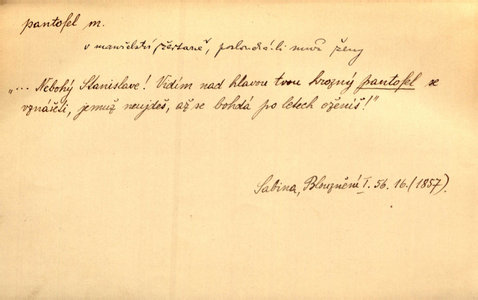 pantofel m.
v manželství žertovně, poslouchá-li muž ženy
„... Nebohý Stanislave! Vidím nad hlavou tvou hrozný pantofel se
vznášeti, jemuž neujdeš, až se bohdá po letech oženíš!"
Sabina, Blouznění I. 56. 16. (1857).